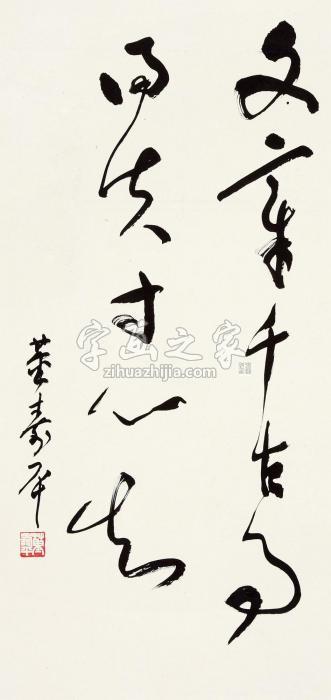 文章千古事
得失寸心知
董寿平
字画之家
zihuazhijia.com